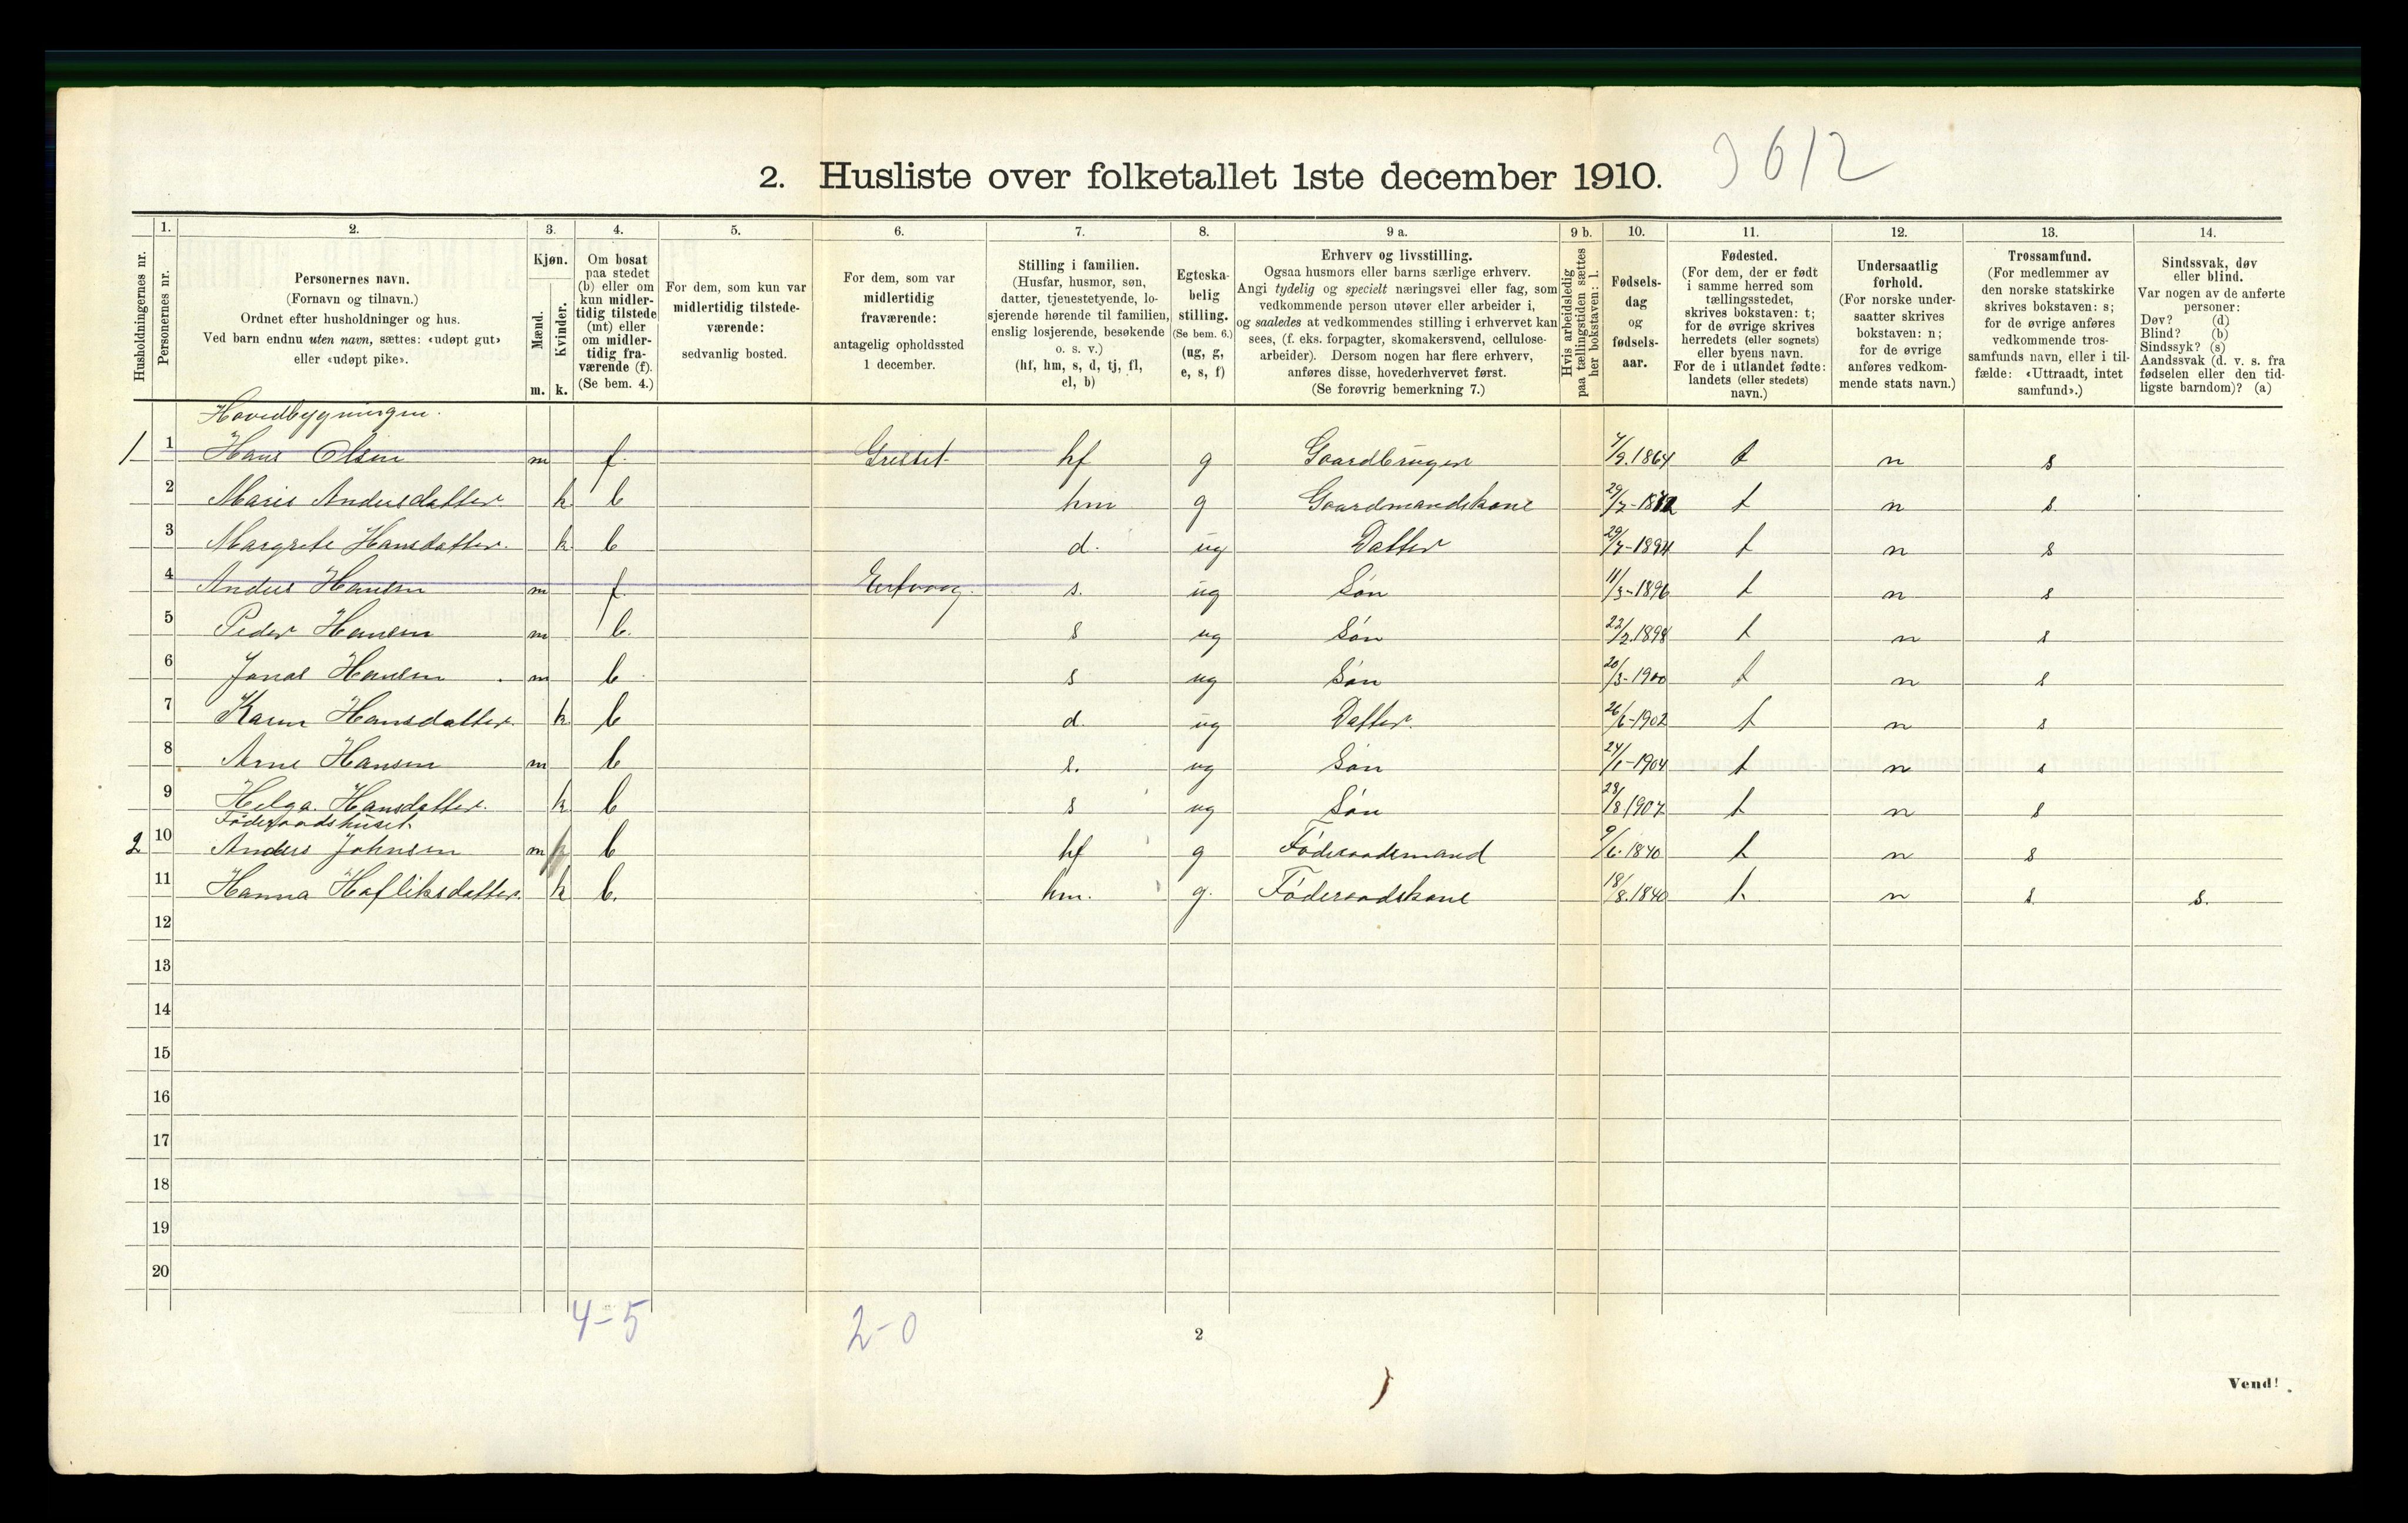 2. Husliste over folketallet 1ste december 1910. 3612
Husholdningernes nr.
1. Personernes nr.
2. Personernes navn. (Fornavn og tilnavn.) Ordnet efter husholdninger og hus. Ved barn endnu uten navn, sættes: «udøpt gut» eller «udøpt pike».
3. Kjøn. Mænd. m. Kvinder. k.
4. Om bosat paa stedet (b) eller om kun midlertidig tilstede (mt) eller om midlertidig fraværende (f). (Se bem. 4.)
5. For dem, som kun var midlertidig tilstedeværende: sedvanlig bosted.
6. For dem, som var midlertidig fraværende: antagelig opholdssted 1 december.
7. Stilling i familien. (Husfar, husmor, søn, datter, tjenestetyende, losjerende hørende til familien, enslig losjerende, besøkende o. s. v.) (hf, hm, s, d, tj, fl, el, b)
8. Egteskabelig stilling. (Se bem. 6.) (ug, g, e, s, f)
9 a. Erhverv og livsstilling. Ogsaa husmors eller barns særlige erhverv. Angi tydelig og specielt næringsvei eller fag, som vedkommende person utøver eller arbeider i, og saaledes at vedkommendes stilling i erhvervet kan sees, (f. eks. forpagter, skomakersvend, cellulosearbeider). Dersom nogen har flere erhverv, anføres disse, hovederhvervet først. (Se forøvrig bemerkning 7.)
9 b. Hvis arbeidsledig paa tællingstiden sættes her bokstaven: l.
10. Fødselsdag og fødselsaar.
11. Fødested. (For dem, der er født i samme herred som tællingsstedet, skrives bokstaven: t; for de øvrige skrives herredets (eller sognets) eller byens navn. For de i utlandet fødte: landets (eller stedets) navn.)
12. Undersaatlig forhold. (For norske undersaatter skrives bokstaven: n; for de øvrige anføres vedkommende stats navn.)
13. Trossamfund. (For medlemmer av den norske statskirke skrives bokstaven: s; for de øvrige anføres vedkommende trossamfunds navn, eller i tilfælde: «Uttraadt, intet samfund».)
14. Sindssvak, døv eller blind. Var nogen av de anførte personer: Døv? (d) Blind? (b) Sindssyk? (s) Aandssvak (d. v. s. fra fødselen eller den tidligste barndom)? (a)
Hovedbygningen.
1 1 Hans Olsen m f Griset hf g Gaardbruger 7/9.1864 t n s
2 Marie Andersdatter k b hm g Gaardmandskone 29/7-1872 t n s.
3 Margrete Hansdatter. k. b d. ug Datter 29/7-1894 t n s
4 Anders Hansen m f s. ug Søn 11/3-1896 t n s
5 Peder Hansen m b. s ug Søn 22/2.1898 t n s
6 Jonas Hansen m b s ug Søn 20/3-1900 t n s
7 Karen Hansdatter. k b d. ug Datter. 26/6-1902 t n s
8 Arne Hansen m b s. ug Søn 24/1-1904 t n s
9 Helga Hansdatter. k b s ug Søn 28/8.1907 t n s
Føderaadshuset.
2 10 Anders Johnsen m b hf g Føderaadsmand 9/6.1840 t n s
11 Hanna Hafliksdatter. k b. hm. g. Føderaadskone 18/8.1840 t. n s. s.
12
13
14
15
16
17
18
19
20
4-5 2-0
2
Vend!